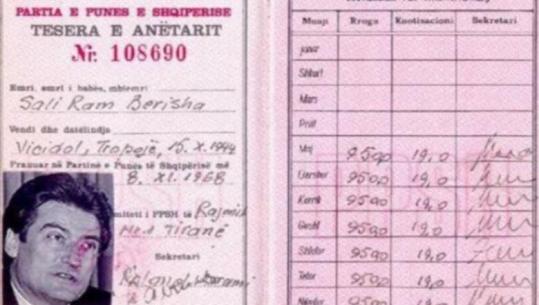 PARTIA E PUNES E SHQIPERISE
TESERA E ANËTARIT
Nr. 108690
Emri, emri i babës, mbiemri
Sali Ram Berisha
Vendi dhe datëlindja
Vicidol, Tropojë, 15.X.1944
Pranuar në Partinë e Punës të Shqipërisë më
8. XI. 1968
miteti i PPSH të Rajonit
Tiranë
Sekretari
Muaji Rroga Kuotizacioni Sekretari
Janar
Shkurt
Mars
Prill
Maj 950,0 19,0
Qershor 950,0 19,0
Korrik 950,0 19,0
Gusht 950,0 19,0
Shtator 950,0 19,0
Tetor 950,0 19,0
Nëntor 950,0 19,0